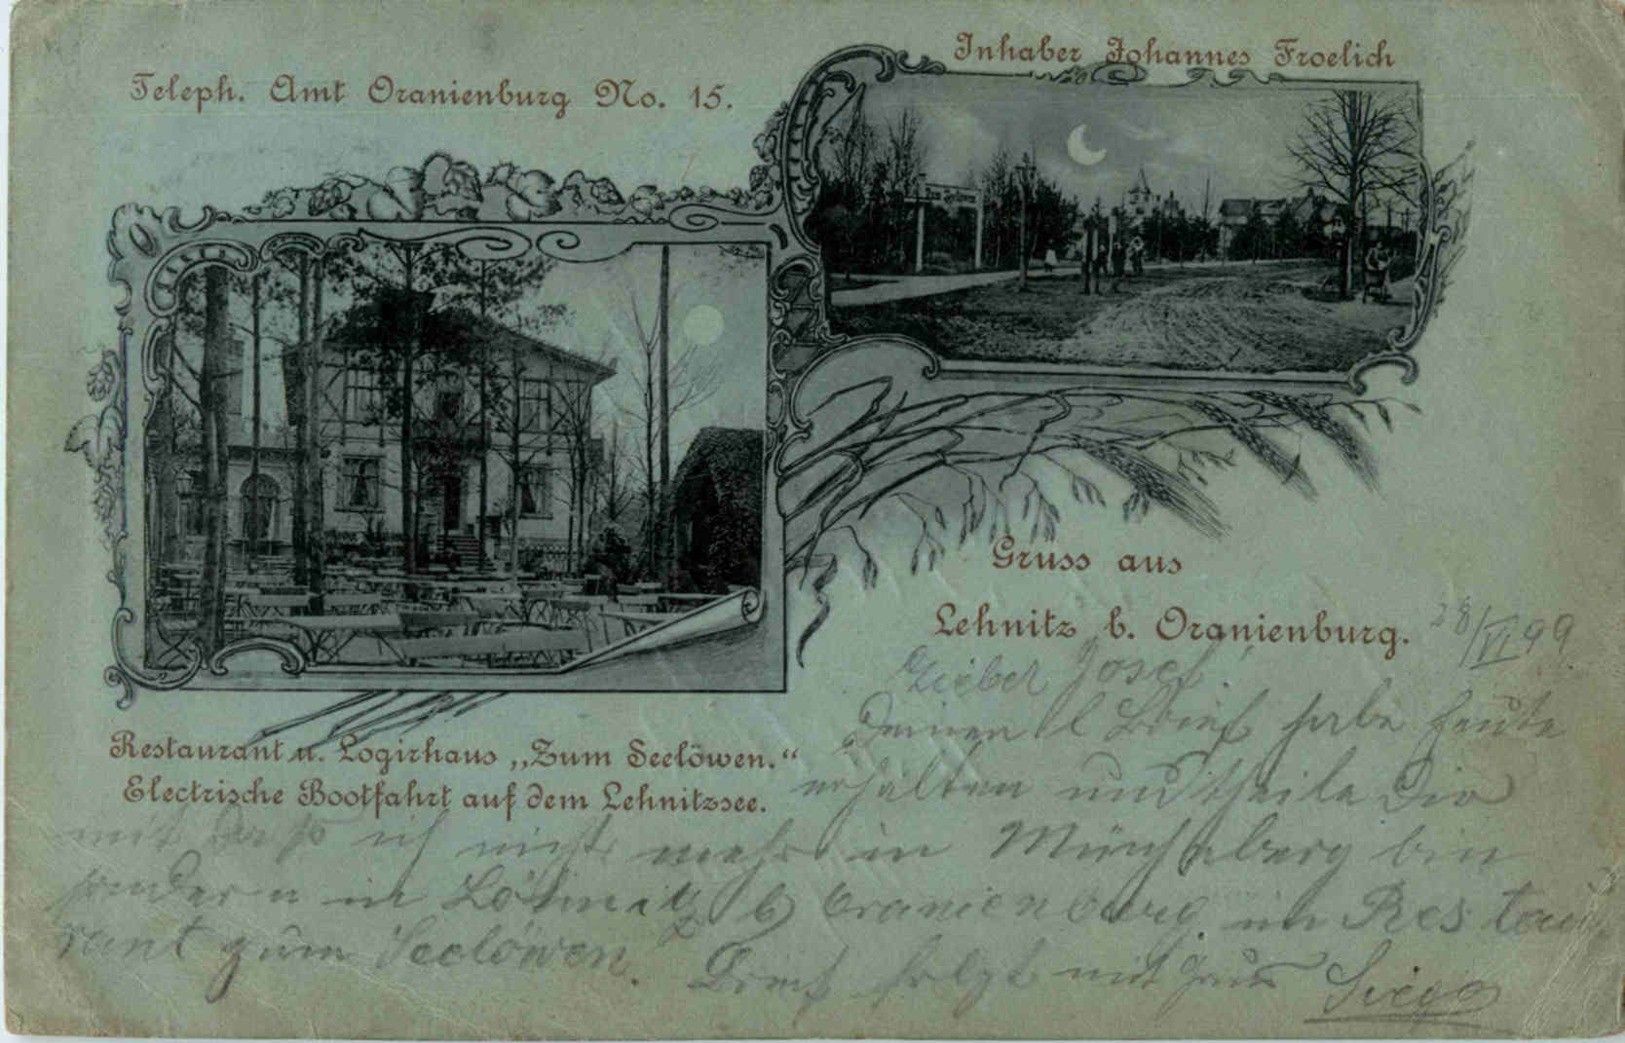 Teleph. Amt Oranienburg No. 15.
Inhaber Johannes Froelich
Gruss aus
Lehnitz b. Oranienburg.
28/VI 99
Restaurant u. Logirhaus „Zum Seelöwen.“
Electrische Bootfahrt auf dem Lehnitzsee.
Lieber Josef!
Deinen l Brief habe heute
erhalten und theile Dir
mit daß ich nicht mehr in Müncheberg bin
sondern in Löhnitz b Oranienburg im Restau
rant zum Seelöwen. Brief folgt mit Gruss